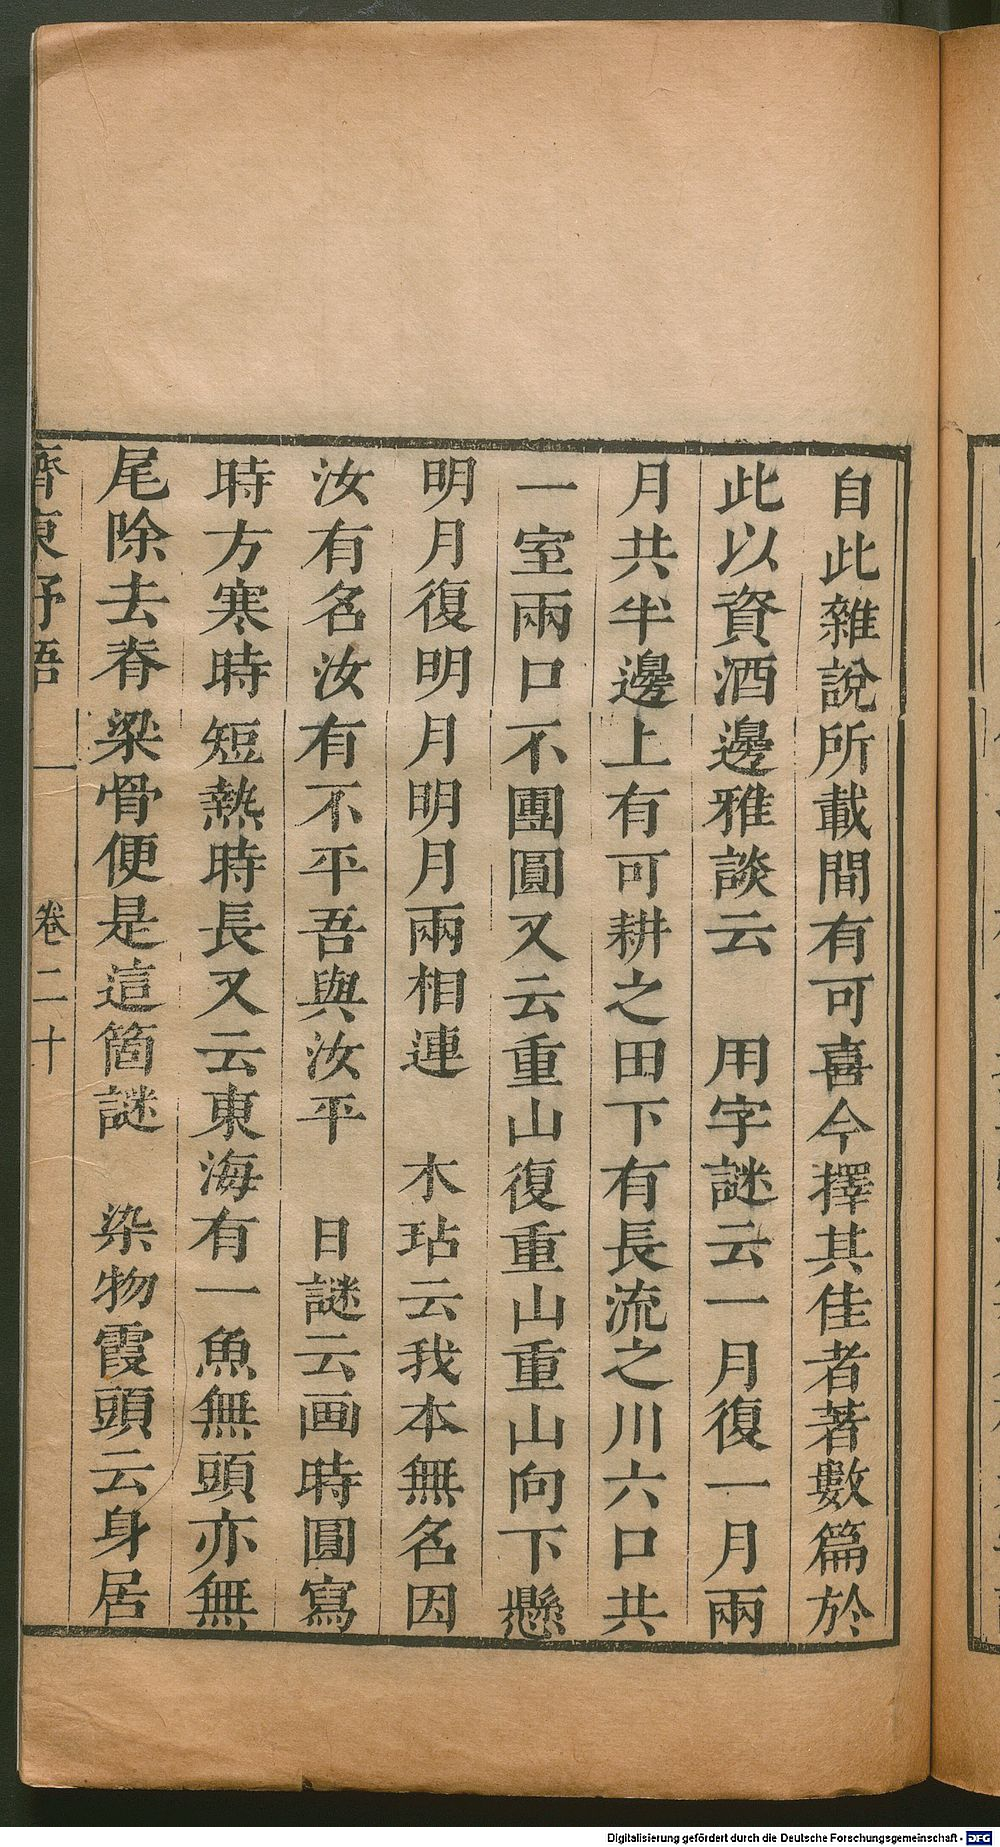 自此雜說所載間有可喜今擇其佳者著數篇於
此以資酒邊雅談云　用字謎云一月復一月兩
月共半邊上有可耕之田下有長流之川六口共
一室兩口不團圓又云重山復重山重山向下懸
明月復明月明月兩相連　木玷云我本無名因
汝有名汝有不平吾與汝平　日謎云画時圓寫
時方寒時短熱時長又云東海有一魚無頭亦無
尾除去脊梁骨便是這箇謎　染物霞頭云身居
齊東野語　卷二十
Digitalisierung gefördert durch die Deutsche Forschungsgemeinschaft - DFG